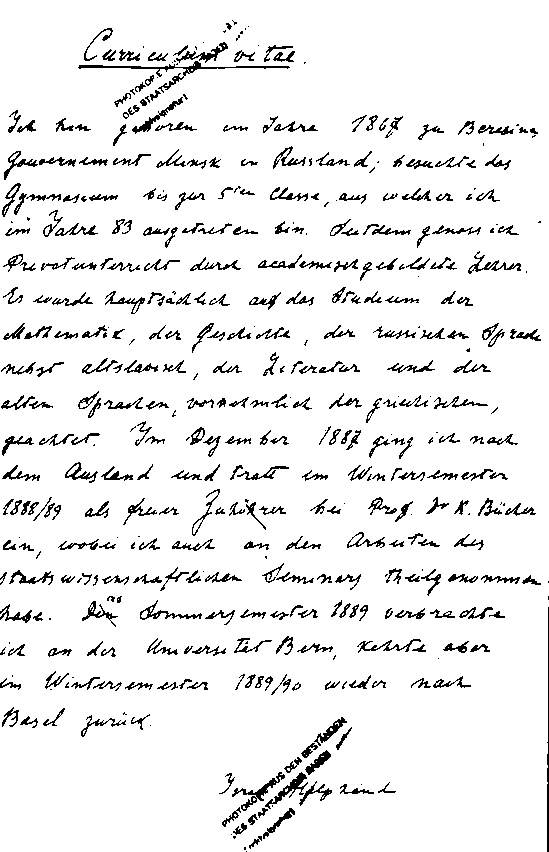 Curriculum vitae.
PHOTOKOPIE AUS DEN BESTÄNDEN
DES STAATSARCHIVS BASEL
Ich bin geboren im Jahre 1867 zu Beresina,
Gouvernement Minsk in Russland; besuchte das
Gymnasium bis zur 5ten Classe, aus welcher ich
im Jahre 83 ausgetreten bin. Seitdem genoss ich
Privatunterricht durch academischgebildete Lehrer.
Es wurde hauptsächlich auf das Studium der
Mathematik, der Geschichte, der russischen Sprache
nebst altslavisch, der Literatur und der
alten Sprachen, vornehmlich der griechischen,
geachtet. Im Dezember 1887 ging ich nach
dem Ausland und tratt im Wintersemester
1888/89 als freier Zuhörer bei Prof. Dr K. Bücher
ein, wobei ich auch an den Arbeiten des
staatswissenschaftlichen Seminars theilgenommen
habe. Das Sommersemester 1889 verbrachte
ich an der Universität Bern, kehrte aber
im Wintersemester 1889/90 wieder nach
Basel zurück.
Helphand
PHOTOKOPIE AUS DEN BESTÄNDEN
DES STAATSARCHIVS BASEL